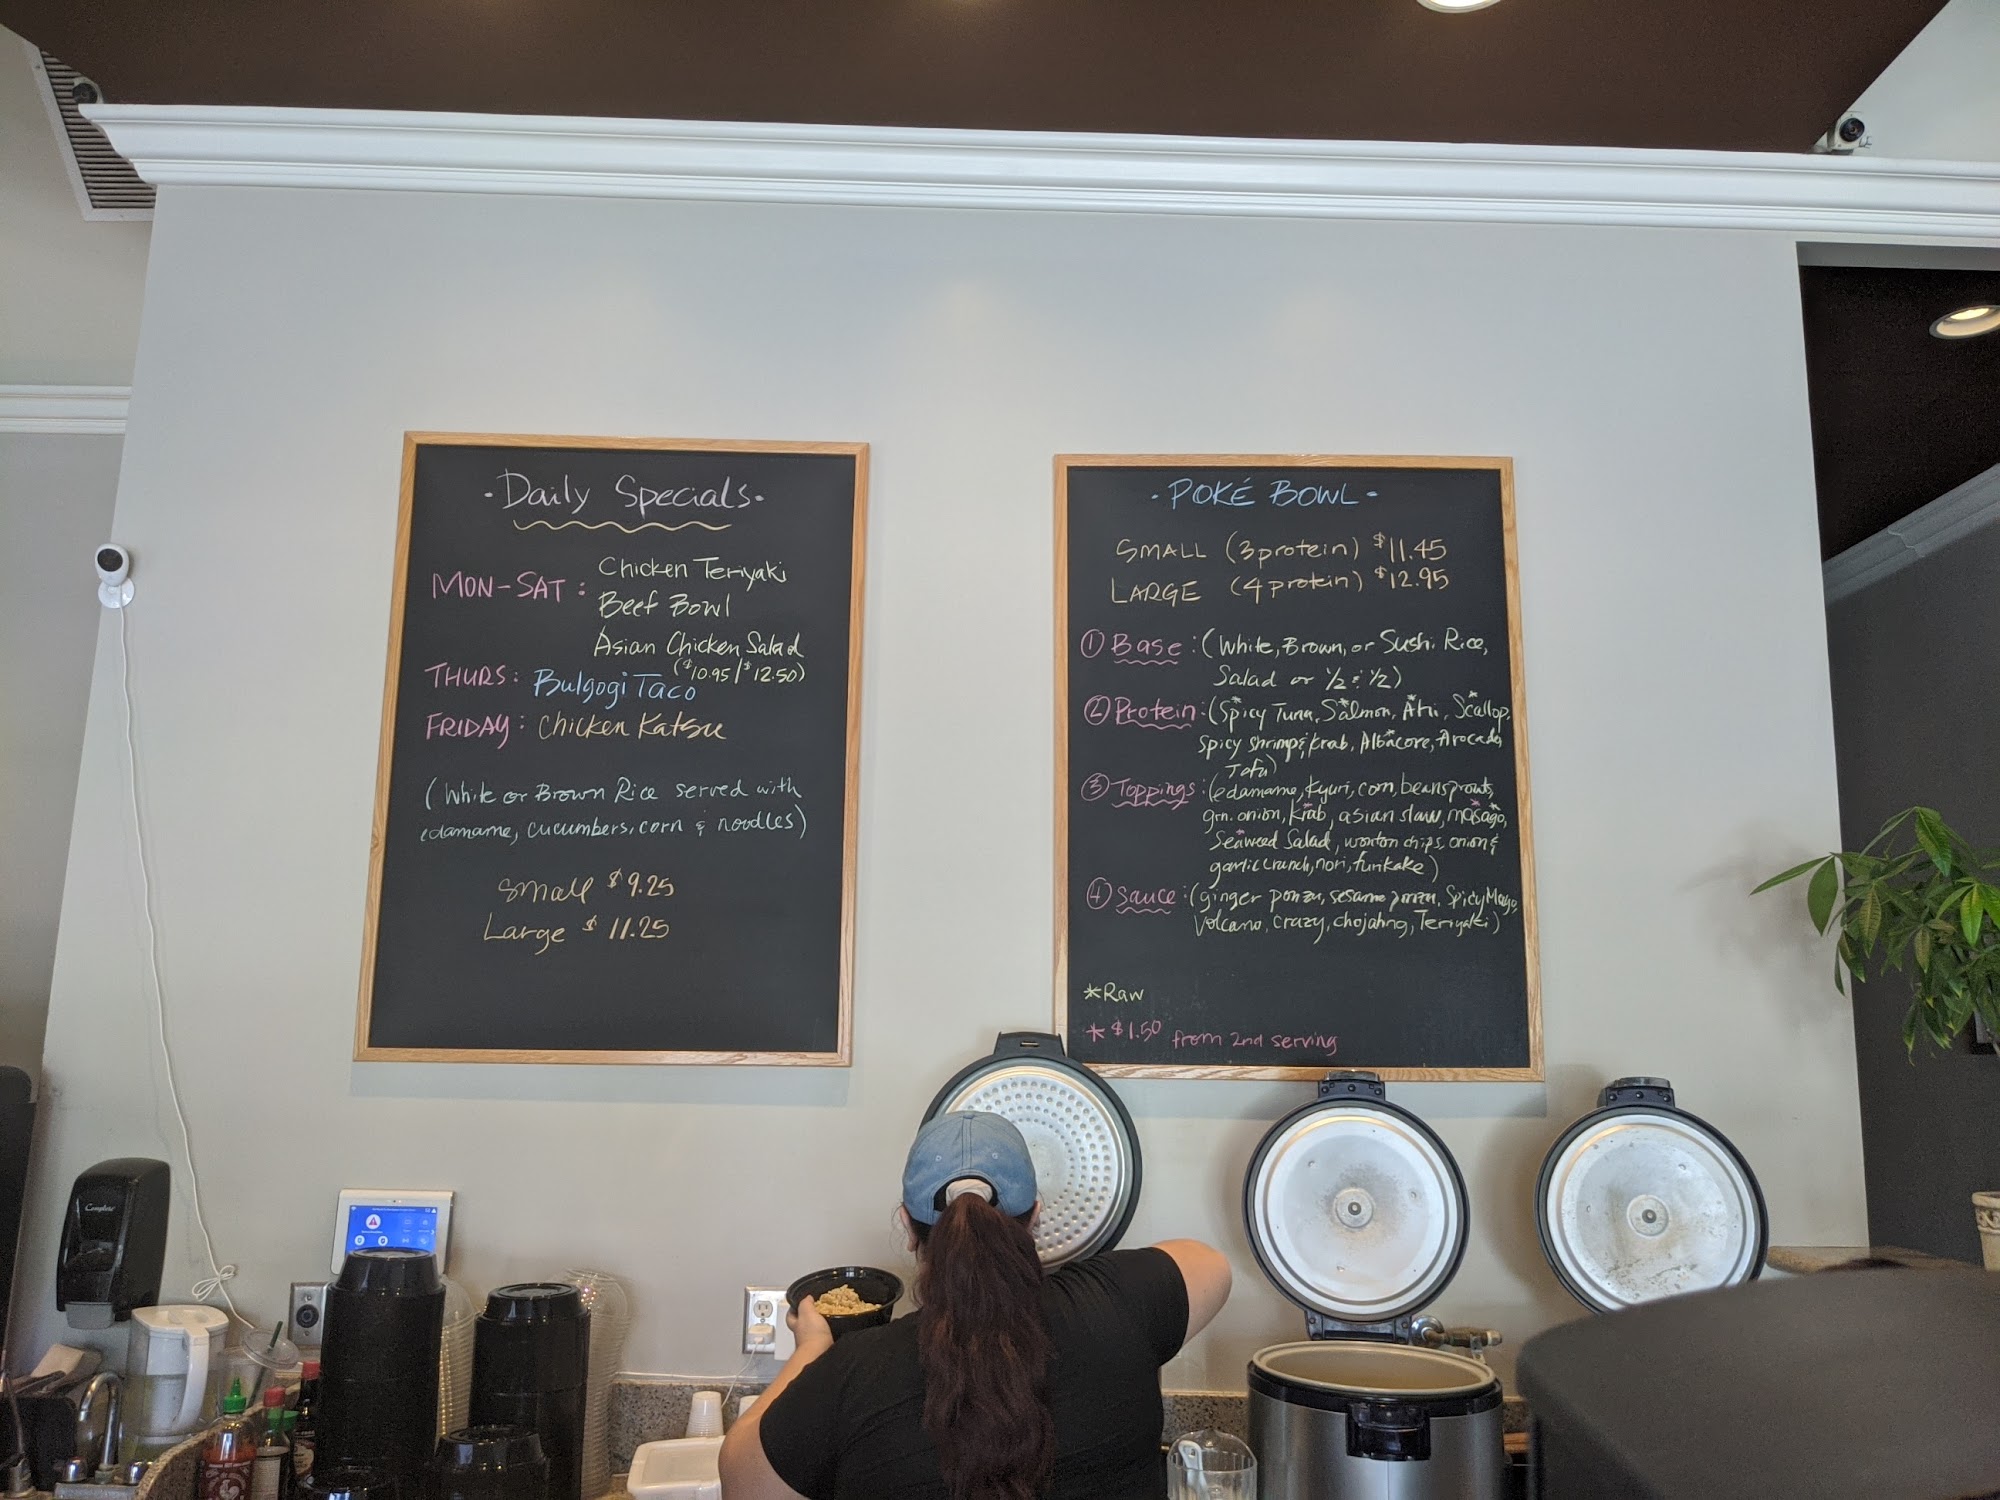 · Daily Specials ·
MON-SAT : Chicken Teriyaki
Beef Bowl
Asian Chicken Salad
($10.95/$12.50)
THURS: Bulgogi Taco
FRIDAY: Chicken Katsu
(White or Brown Rice served with
edamame, cucumbers, corn & noodles)
Small $9.25
Large $11.25
· POKÉ BOWL ·
SMALL (3 protein) $11.45
LARGE (4 protein) $12.95
① Base : (White, Brown, or Sushi Rice,
Salad or 1/2 & 1/2)
② Protein : (Spicy Tuna, Salmon, Ahi, Scallop,
Spicy shrimp & krab, Albacore, Avocado,
Tofu)
③ Toppings : (edamame, kyuri, corn, beansprouts,
grn. onion, krab, asian slaw, masago,
Seaweed Salad, wonton chips, onion &
garlic crunch, nori, furikake)
④ Sauce : (ginger ponzu, sesame ponzu, Spicy Mayo,
Volcano, Crazy, chojahng, Teriyaki)
*Raw
* $1.50 from 2nd serving
Complete